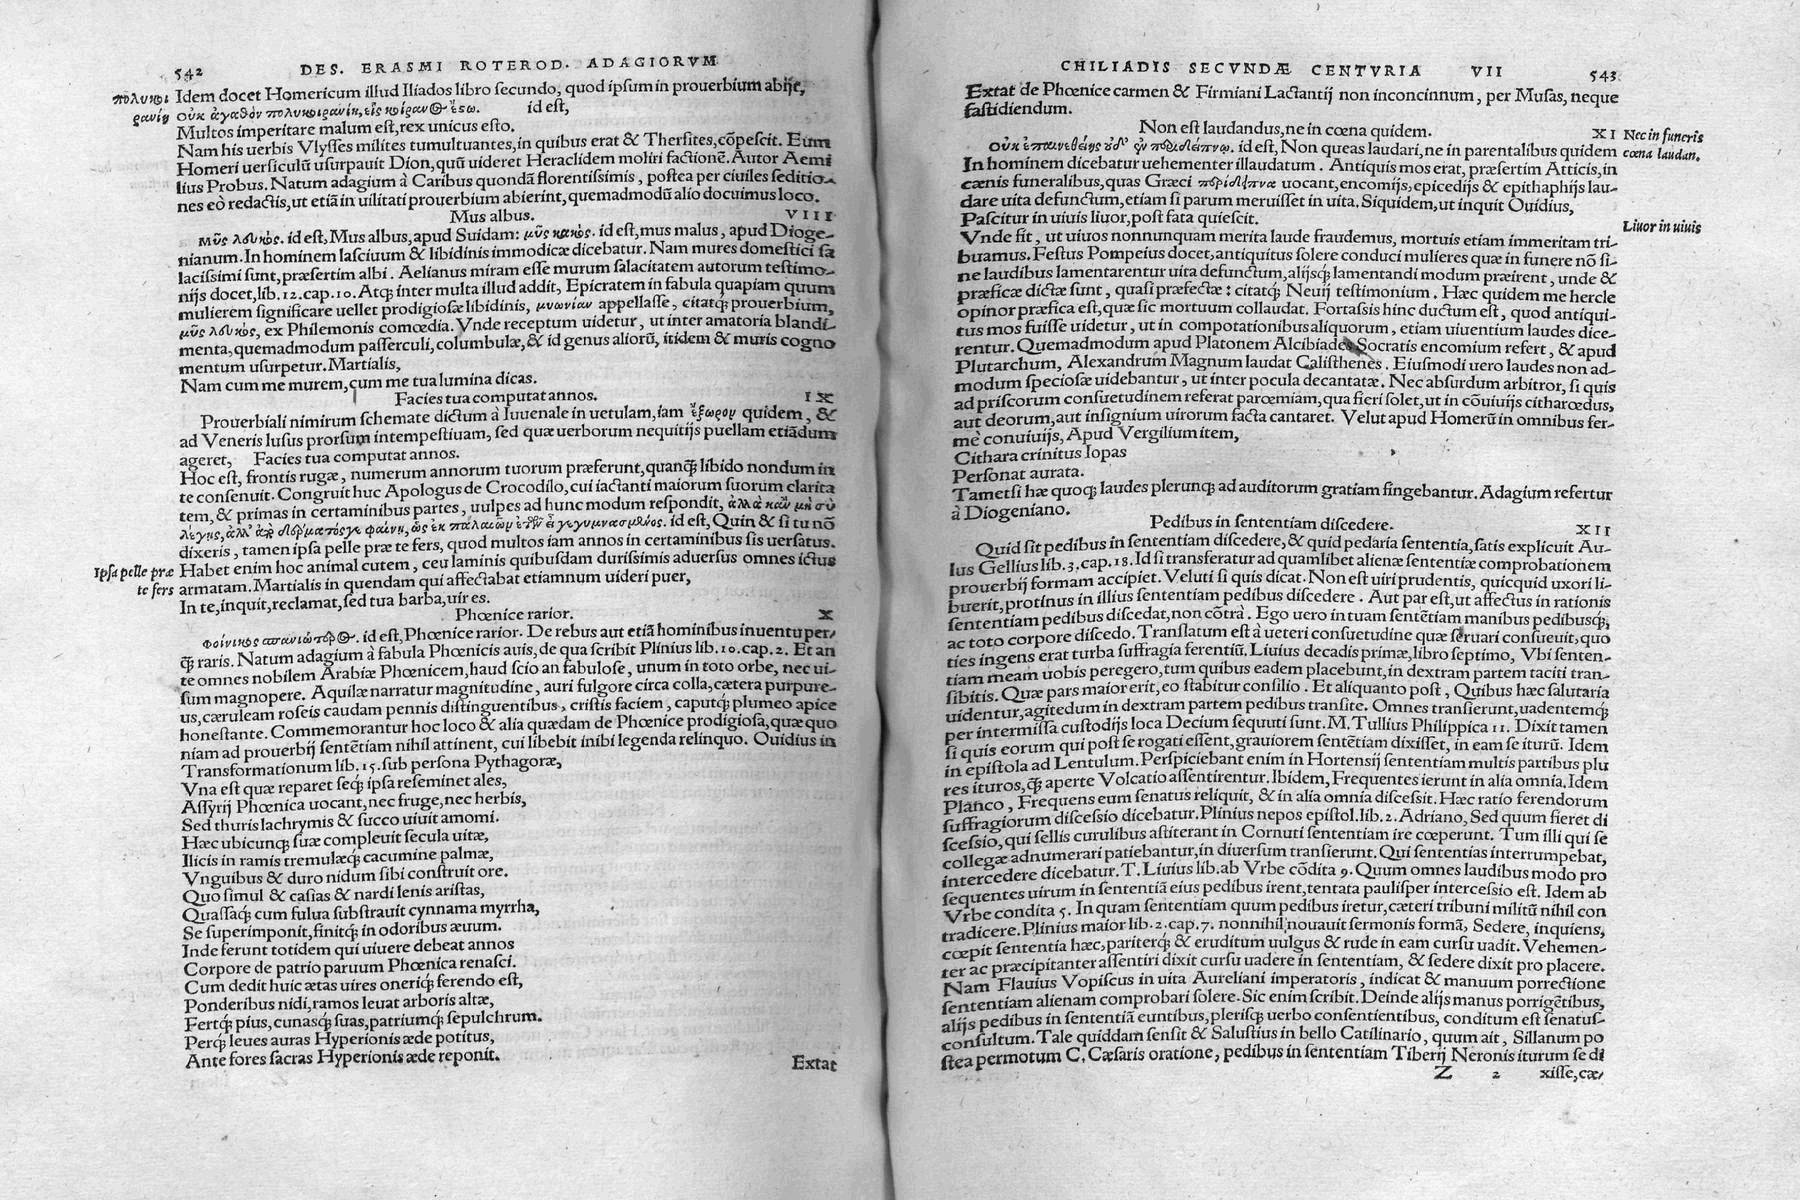 542 DES. ERASMI ROTEROD. ADAGIORVM
πολυκοι
ρανίη
Idem docet Homericum illud Iliados libro secundo, quod ipsum in prouerbium abijt,
οὐκ ἀγαθὸν πολυκοιρανίη, εἷς κοίρανος ἔσω. id est,
Multos imperitare malum est, rex unicus esto.
Nam his uerbis Vlysses milites tumultuantes, in quibus erat & Thersites, cōpescit. Eum
Homeri uersiculū usurpauit Dion, quū uideret Heraclidem moliri factionē. Autor Aemi
lius Probus. Natum adagium à Caribus quondā florentissimis, postea per ciuiles seditio-
nes eò redactis, ut etiā in uilitati prouerbium abierint, quemadmodū alio docuimus loco.
Mus albus. VIII
μῦς λευκὸς. id est, Mus albus, apud Suidam: μῦς κακὸς. id est, mus malus, apud Dioge-
nianum. In hominem lasciuum & libidinis immodicæ dicebatur. Nam mures domestici sa
lacissimi sunt, præsertim albi. Aelianus miram esse murum salacitatem autorum testimo-
nijs docet, lib. 12. cap. 10. Atq; inter multa illud addit, Epicratem in fabula quapiam quum
mulierem significare uellet prodigiosæ libidinis, μυωνίαν appellasse, citatq; prouerbium,
μῦς λευκὸς, ex Philemonis comœdia. Vnde receptum uidetur, ut inter amatoria blandi-
menta, quemadmodum passerculi, columbulæ, & id genus aliorū, itidem & muris cogno
mentum usurpetur. Martialis,
Nam cum me murem, cum me tua lumina dicas.
Facies tua computat annos. IX
Prouerbiali nimirum schemate dictum à Iuuenale in uetulam, iam ἔξωρον quidem, &
ad Veneris lusus prorsum intempestiuam, sed quæ uerborum nequitijs puellam etiādum
ageret, Facies tua computat annos.
Hoc est, frontis rugæ, numerum annorum tuorum præferunt, quanq; libido nondum in
te consenuit. Congruit huc Apologus de Crocodilo, cui iactanti maiorum suorum clarita
tem, & primas in certaminibus partes, uulpes ad hunc modum respondit, ἀλλὰ κἂν μὴ σὺ
λέγῃς, ἀλλ' ἀπὸ δέρματός γε φαίνῃ, ὡς ἐκ παλαιῶν ἐτῶν εἶ γεγυμνασμένος. id est, Quin & si tu nō
dixeris, tamen ipsa pelle præ te fers, quod multos iam annos in certaminibus sis uersatus.
Ipsa pelle præ
te fers
Habet enim hoc animal cutem, ceu laminis quibusdam durissimis aduersus omnes ictus
armatam. Martialis in quendam qui affectabat etiamnum uideri puer,
In te, inquit, reclamat, sed tua barba, uir es.
Phœnice rarior. X
φοίνικος σπανιώτερος. id est, Phœnice rarior. De rebus aut etiā hominibus inuentu per-
q; raris. Natum adagium à fabula Phœnicis auis, de qua scribit Plinius lib. 10. cap. 2. Et an
te omnes nobilem Arabiæ Phœnicem, haud scio an fabulose, unum in toto orbe, nec ui-
sum magnopere. Aquilæ narratur magnitudine, auri fulgore circa colla, cætera purpure-
us, cæruleam roseis caudam pennis distinguentibus, cristis faciem, caputq; plumeo apice
honestante. Commemorantur hoc loco & alia quædam de Phœnice prodigiosa, quæ quo
niam ad prouerbij sentētiam nihil attinent, cui libebit inibi legenda relinquo. Ouidius in
Transformationum lib. 15. sub persona Pythagoræ,
Vna est quæ reparet seq; ipsa reseminet ales,
Assyrij Phœnica uocant, nec fruge, nec herbis,
Sed thuris lachrymis & succo uiuit amomi.
Hæc ubicunq; suæ compleuit secula uitæ,
Ilicis in ramis tremulæq; cacumine palmæ,
Vnguibus & duro nidum sibi construit ore.
Quo simul & casias & nardi lenis aristas,
Quassaq; cum fulua substrauit cynnama myrrha,
Se superimponit, finitq; in odoribus æuum.
Inde ferunt totidem qui uiuere debeat annos
Corpore de patrio paruum Phœnica renasci.
Cum dedit huic ætas uires oneriq; ferendo est,
Ponderibus nidi, ramos leuat arboris altæ,
Fertq; pius, cunasq; suas, patriumq; sepulchrum.
Perq; leues auras Hyperionis æde potitus,
Ante fores sacras Hyperionis æde reponit.
Extat
CHILIADIS SECVNDÆ CENTVRIA VII 543
Extat de Phœnice carmen & Firmiani Lactantij non inconcinnum, per Musas, neque
fastidiendum.
Non est laudandus, ne in cœna quidem. XI
Nec in funeris
cœna laudan.
οὐκ ἐπαινεθείης οὐδ' ἐν περιδείπνῳ. id est, Non queas laudari, ne in parentalibus quidem
In hominem dicebatur uehementer illaudatum. Antiquis mos erat, præsertim Atticis, in
cænis funeralibus, quas Græci περίδειπνα uocant, encomijs, epicedijs & epithaphijs lau-
dare uita defunctum, etiam si parum meruisset in uita. Siquidem, ut inquit Ouidius,
Pascitur in uiuis liuor, post fata quiescit.
Liuor in uiuis
Vnde fit, ut uiuos nonnunquam merita laude fraudemus, mortuis etiam immeritam tri-
buamus. Festus Pompeius docet, antiquitus solere conduci mulieres quæ in funere nō si-
ne laudibus lamentarentur uita defunctum, alijsq; lamentandi modum præirent, unde &
præficæ dictæ sunt, quasi præfectæ: citatq; Neuij testimonium. Hæc quidem me hercle
opinor præfica est, quæ sic mortuum collaudat. Fortassis hinc ductum est, quod antiqui-
tus mos fuisse uidetur, ut in compotationibus aliquorum, etiam uiuentium laudes dice-
rentur. Quemadmodum apud Platonem Alcibiades Socratis encomium refert, & apud
Plutarchum, Alexandrum Magnum laudat Calisthenes. Eiusmodi uero laudes non ad-
modum speciosæ uidebantur, ut inter pocula decantatæ. Nec absurdum arbitror, si quis
ad priscorum consuetudinem referat parœmiam, qua fieri solet, ut in cōuiuijs citharœdus,
aut deorum, aut insignium uirorum facta cantaret. Velut apud Homerū in omnibus fer-
mè conuiuijs, Apud Vergilium item,
Cithara crinitus Iopas
Personat aurata.
Tametsi hæ quoq; laudes plerunq; ad auditorum gratiam fingebantur. Adagium refertur
à Diogeniano.
Pedibus in sententiam discedere. XII
Quid sit pedibus in sententiam discedere, & quid pedaria sententia, satis explicuit Au-
lus Gellius lib. 3. cap. 18. Id si transferatur ad quamlibet alienæ sententiæ comprobationem
prouerbij formam accipiet. Veluti si quis dicat. Non est uiri prudentis, quicquid uxori li-
buerit, protinus in illius sententiam pedibus discedere. Aut par est, ut affectus in rationis
sententiam pedibus discedat, non cōtrà. Ego uero in tuam sentētiam manibus pedibusq;,
ac toto corpore discedo. Translatum est à ueteri consuetudine quæ seruari consueuit, quo
ties ingens erat turba suffragia ferentiū. Liuius decadis primæ, libro septimo, Vbi senten-
tiam meam uobis peregero, tum quibus eadem placebunt, in dextram partem taciti tran-
sibitis. Quæ pars maior erit, eo stabitur consilio. Et aliquanto post, Quibus hæc salutaria
uidentur, agitedum in dextram partem pedibus transite. Omnes transierunt, uadentemq;
per intermissa custodijs loca Decium sequuti sunt. M. Tullius Philippica 11. Dixit tamen
si quis eorum qui post se rogati essent, grauiorem sentētiam dixisset, in eam se iturū. Idem
in epistola ad Lentulum. Perspiciebant enim in Hortensij sententiam multis partibus plu
res ituros, q; aperte Volcatio assentirentur. Ibidem, Frequentes ierunt in alia omnia. Idem
Planco, Frequens eum senatus reliquit, & in alia omnia discessit. Hæc ratio ferendorum
suffragiorum discessio dicebatur. Plinius nepos epistol. lib. 2. Adriano, Sed quum fieret di
scessio, qui sellis curulibus astiterant in Cornuti sententiam ire cœperunt. Tum illi qui se
collegæ adnumerari patiebantur, in diuersum transierunt. Qui sententias interrumpebat,
intercedere dicebatur. T. Liuius lib. ab Vrbe cōdita 9. Quum omnes laudibus modo pro
sequentes uirum in sententiā eius pedibus irent, tentata paulisper intercessio est. Idem ab
Vrbe condita 5. In quam sententiam quum pedibus iretur, cæteri tribuni militū nihil con
tradicere. Plinius maior lib. 2. cap. 7. nonnihil nouauit sermonis formā, Sedere, inquiens,
cœpit sententia hæc, pariterq; & eruditum uulgus & rude in eam cursu uadit. Vehemen-
ter ac præcipitanter assentiri dixit cursu uadere in sententiam, & sedere dixit pro placere.
Nam Flauius Vopiscus in uita Aureliani imperatoris, indicat & manuum porrectione
sententiam alienam comprobari solere. Sic enim scribit. Deinde alijs manus porrigētibus,
alijs pedibus in sententiā euntibus, plerisq; uerbo consentientibus, conditum est senatus-
consultum. Tale quiddam sensit & Salustius in bello Catilinario, quum ait, Sillanum po
stea permotum C. Cæsaris oratione, pedibus in sententiam Tiberij Neronis iturum se di
Z 2 xisse, cæ-